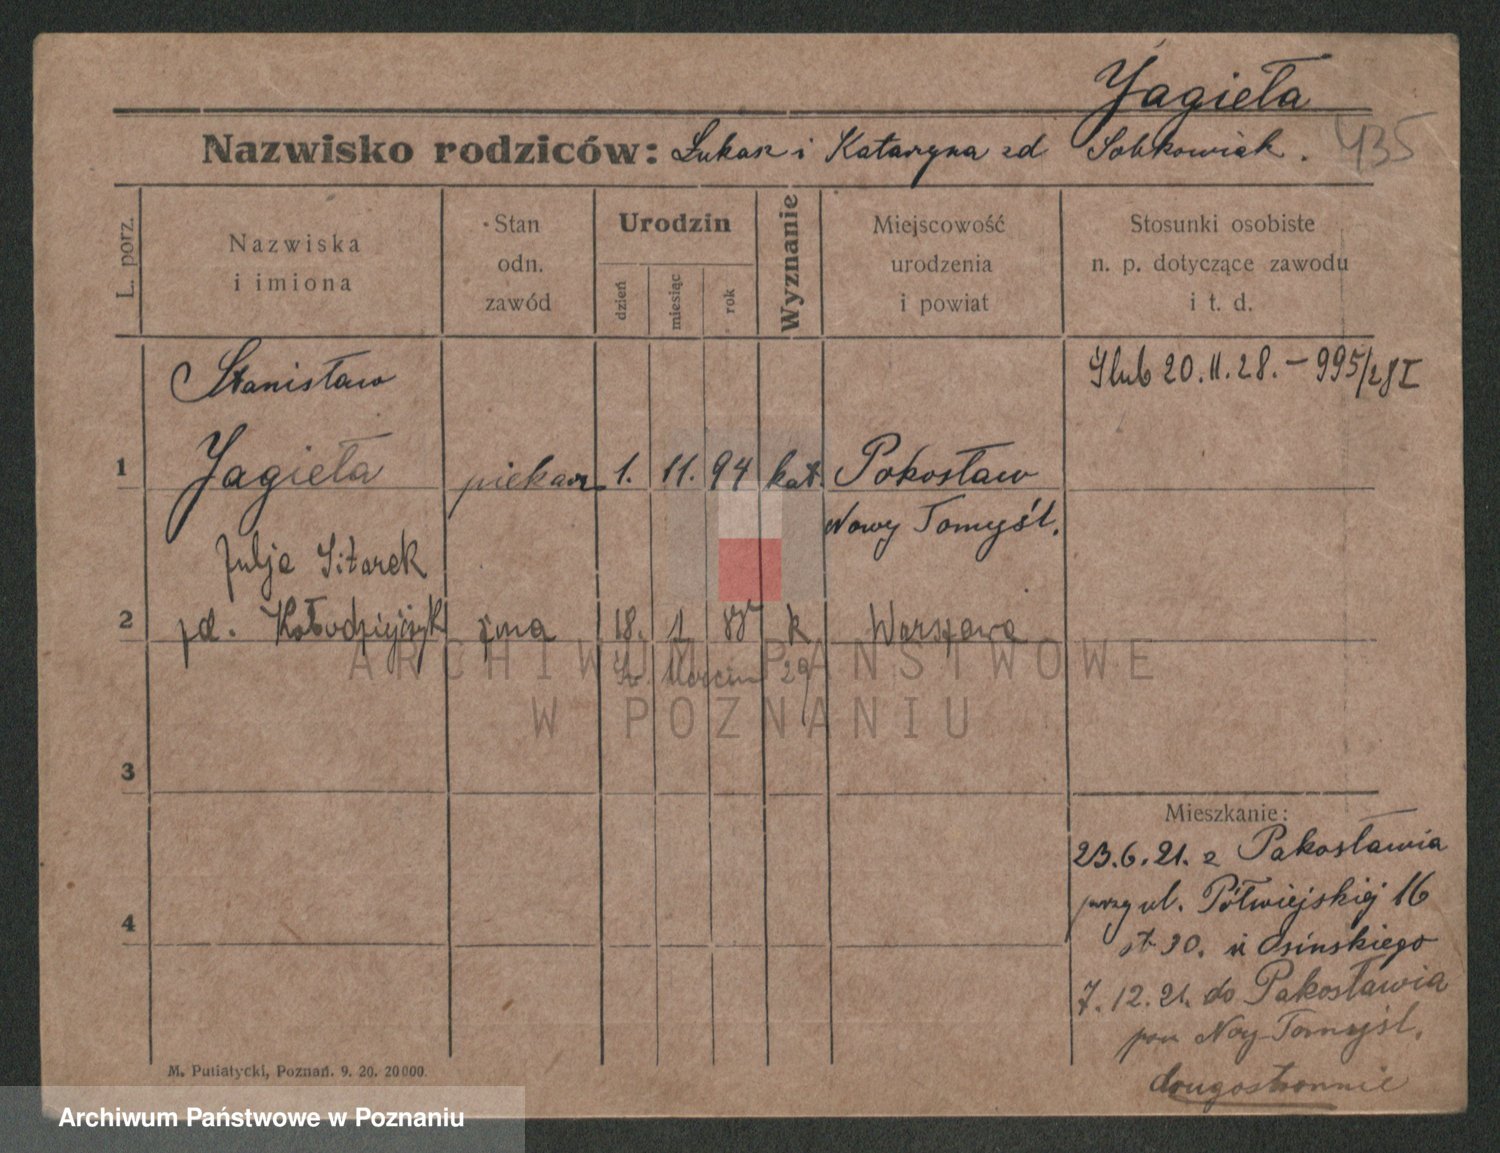 Jagieła
Nazwisko rodziców: Łukasz i Katarzyna zd Sobkowiak. 435
L. porz.
Nazwiska
i imiona
Stan
odn.
zawód
Urodzin
dzień
miesiąc
rok
Wyznanie
Miejscowość
urodzenia
i powiat
Stosunki osobiste
n. p. dotyczące zawodu
i t. d.
Stanisław
Ślub 20.II.28. – 995/28 I
1 Jagieła piekarz 1. 11. 94 kat. Pokosław
Nowy Tomyśl.
Julja Sitarek
2 zd. Kołodziejczyk żona 18. 1 k Warszawa
Św. Marcin 29
ARCHIWUM PAŃSTWOWE
W POZNANIU
3
Mieszkanie:
23.6.21. z Pakosławia
przy ul. Półwiejskiej 16
st 30. u Osinskiego
4
7.12.21. do Pakosławia
pow Nowy Tomyśl.
drugostronnie
M. Putiatycki, Poznań. 9. 20. 20000.
Archiwum Państwowe w Poznaniu